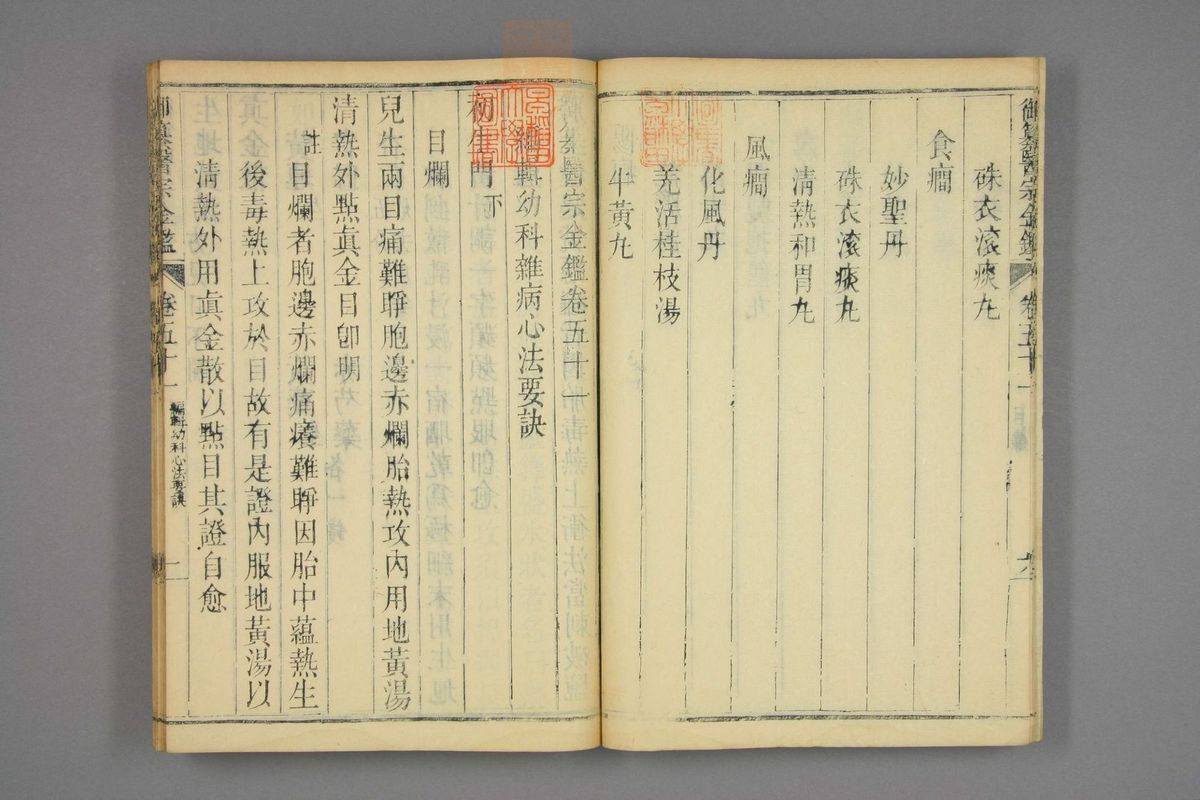 御纂醫宗金鑑 卷五十一
硃衣滾痰丸
食癎
妙聖丹
硃衣滾痰丸
清熱和胃丸
風癎
化風丹
羌活桂枝湯
牛黃丸
醫宗金鑑卷五十一
編輯幼科雜病心法要訣
初生門下
目爛
兒生兩目痛難睜胞邊赤爛胎熱攻內用地黃湯
清熱外點眞金目卽明
註目爛者胞邊赤爛痛癢難睜因胎中蘊熱生
後毒熱上攻於目故有是證內服地黃湯以
清熱外用眞金散以點目其證自愈
御纂醫宗金鑑 卷五十一 編輯幼科心法要訣 一